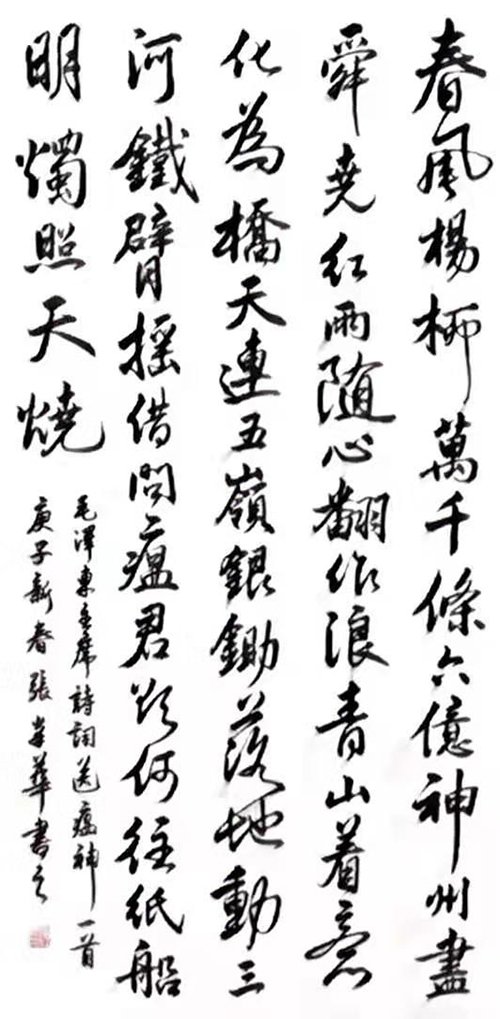 春風楊柳萬千條六億神州盡
舜堯紅雨随心翻作浪青山着意
化為橋天連五嶺銀鋤落地動三
河鐵臂搖借問瘟君欲何往紙船
明燭照天燒
毛澤東主席詩詞送瘟神一首
庚子新春張華書之